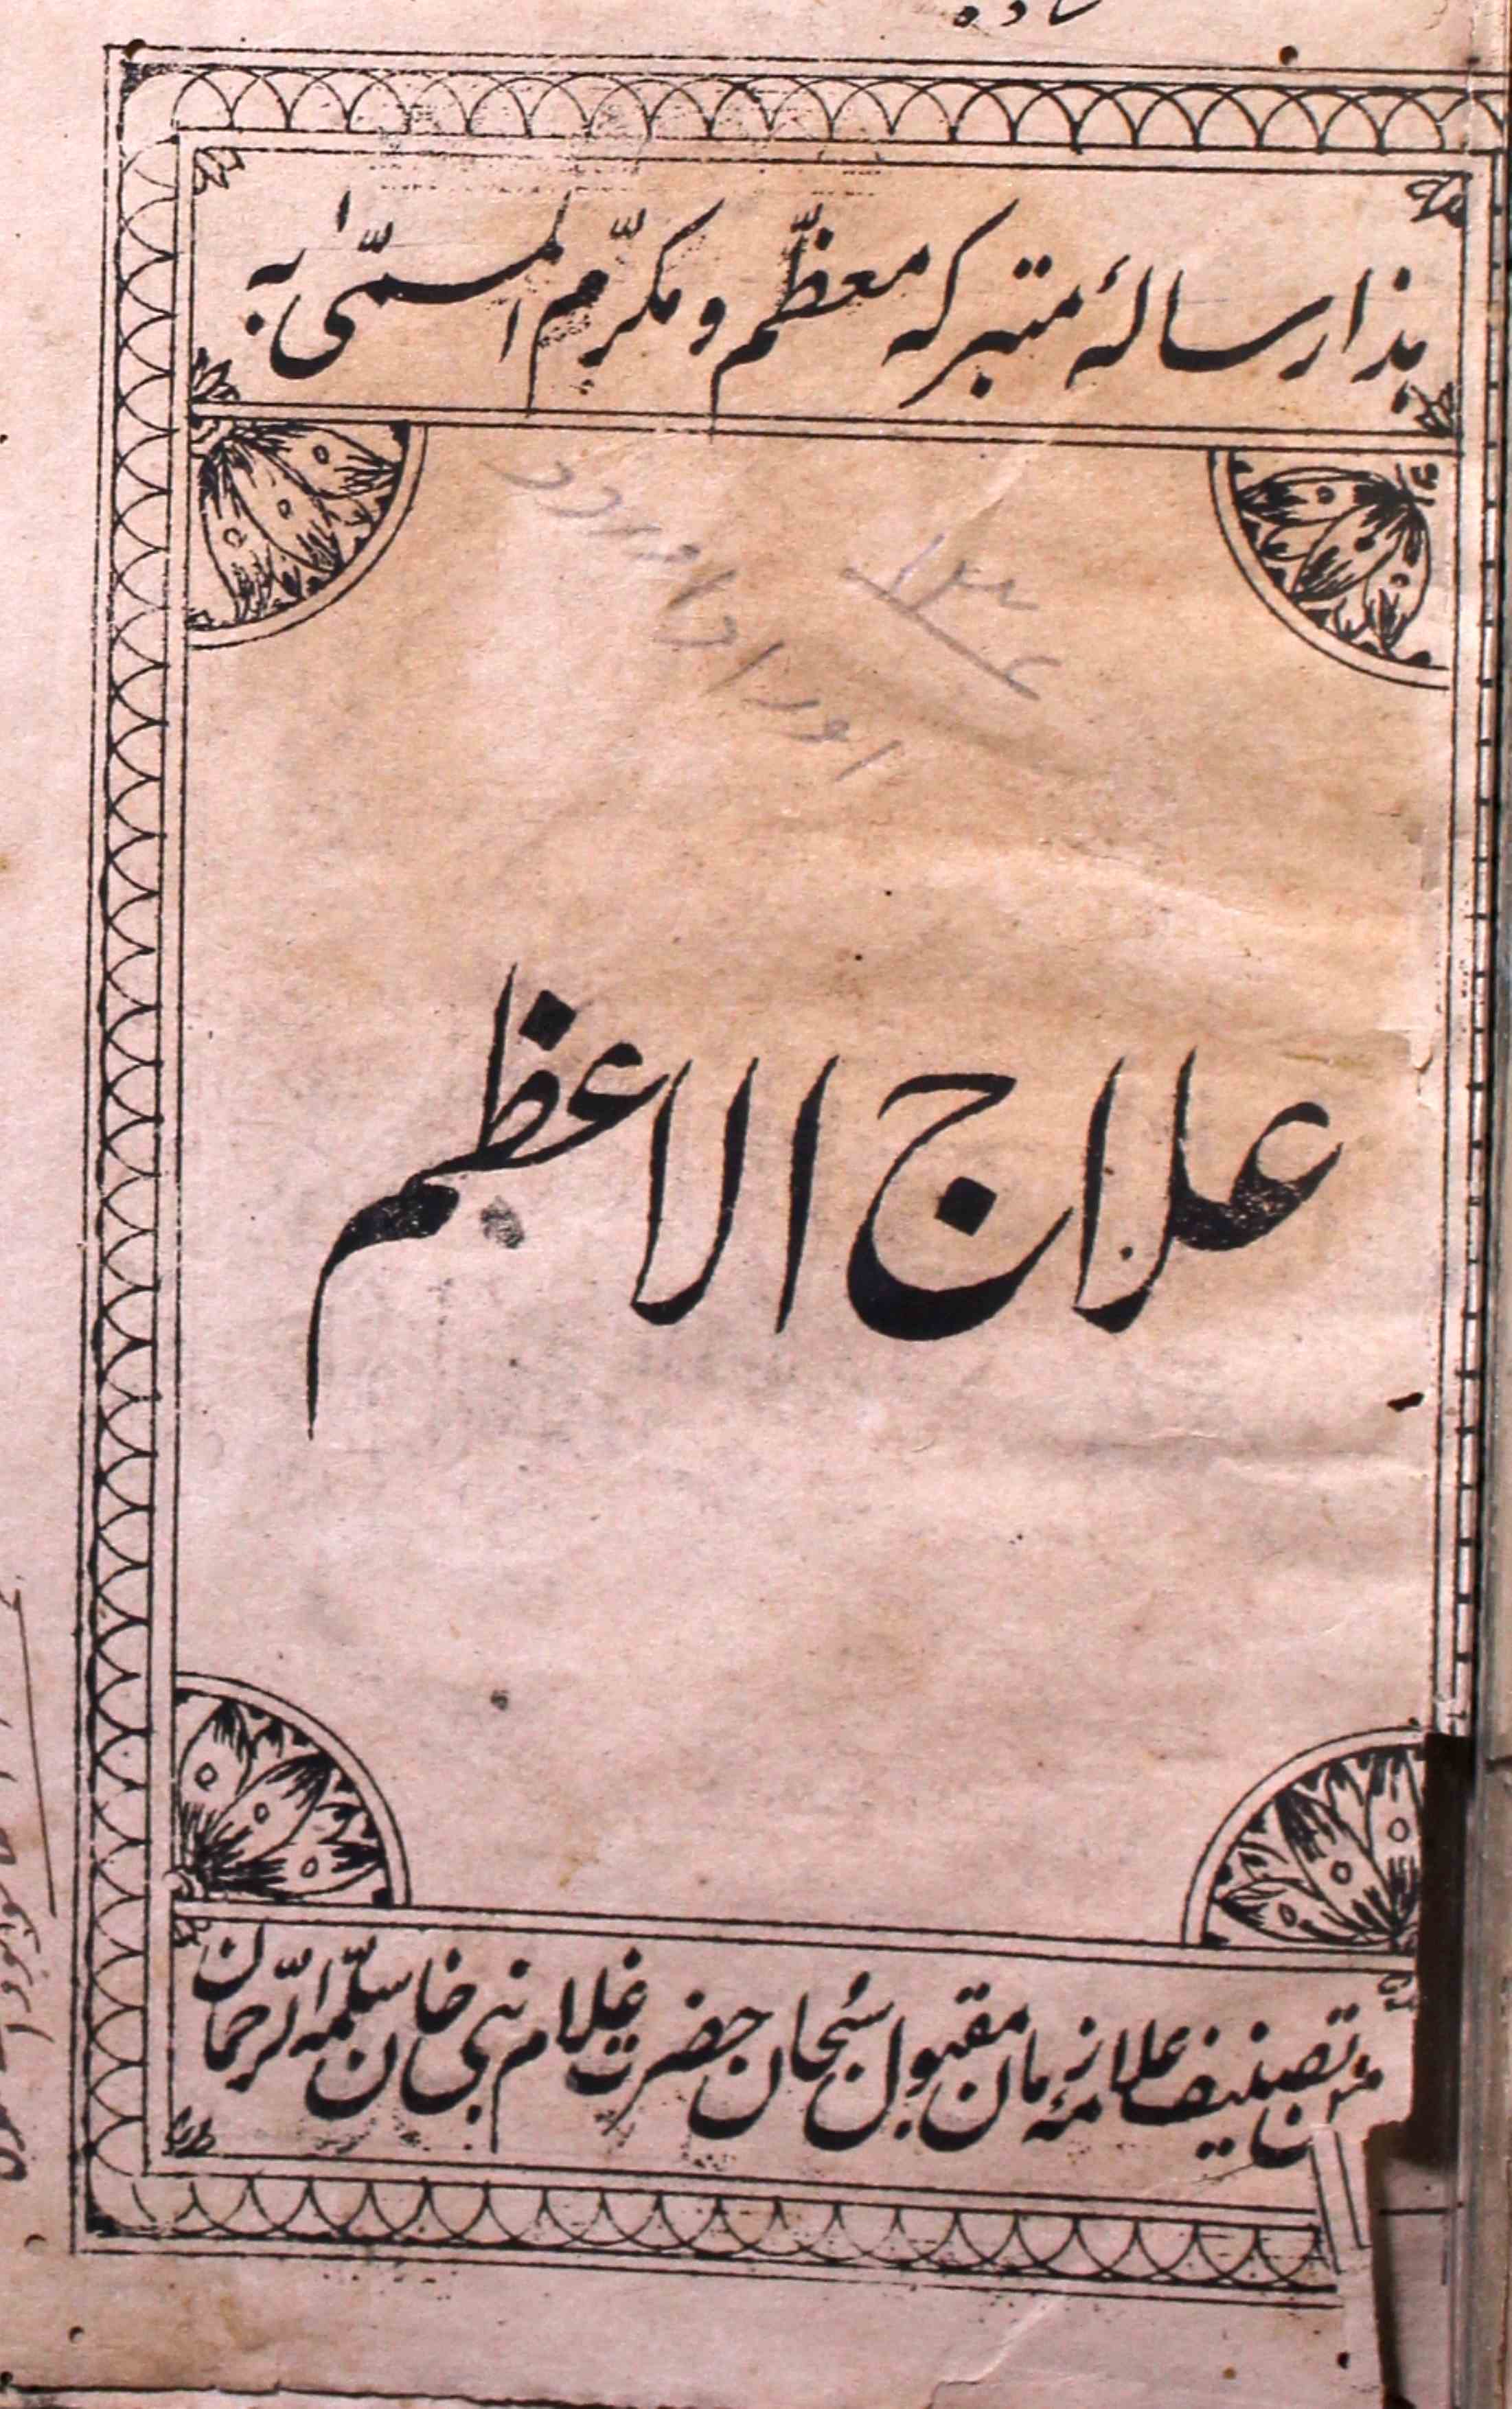 ہذا رسالۂ متبرکہ معظّم و مکرّم المسمّیٰ بہ
اوراد اور درود
علاج الاعظم
من تصنیف علامۂ زمان مقبول سُبحان حضرت غلام نبی خان سلّمہ الرّحمان